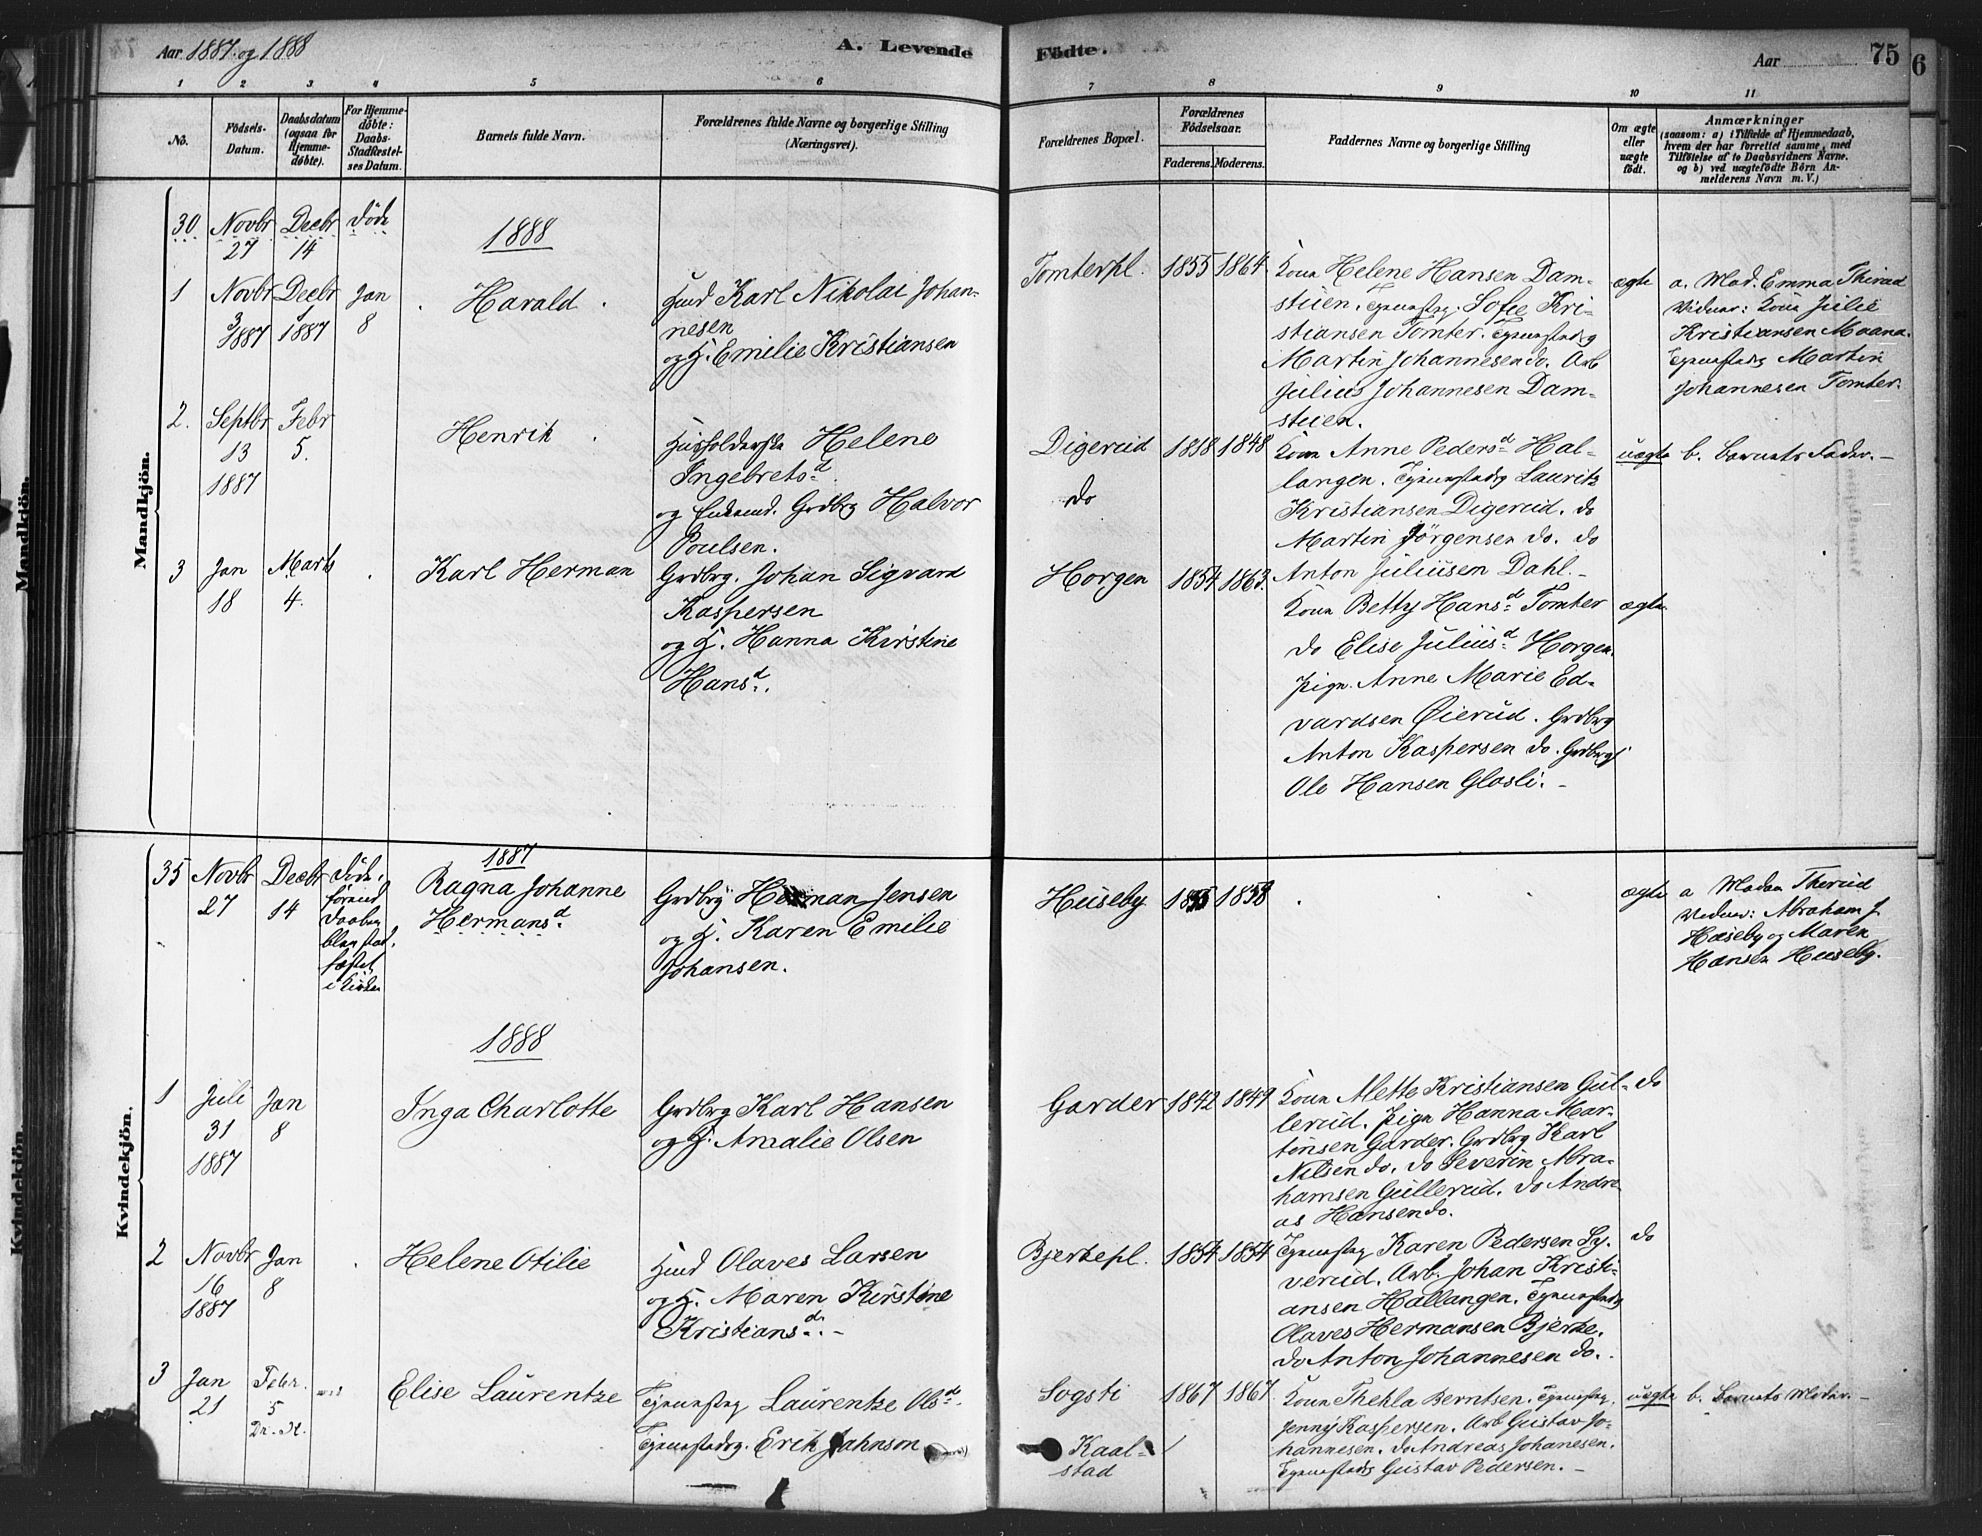 Aar 1887 og 1888
A. Levende
Födte.
Aar
75
6
1 2 3 4 5 6
7 8 9 10 11
No.
Födsels-
Datum.
Daabsdatum
(ogsaa for
Hjemme-
döbte).
For Hjemme-
döbte:
Daabs-
Stadfæstel-
ses Datum.
Barnets fulde Navn.
Forældrenes fulde Navne og borgerlige Stilling
(Næringsvei).
Forældrenes Bopæl.
Forældrenes
Födselsaar.
Faderens.
Moderens.
Faddernes Navne og borgerlige Stilling
Om ægte
eller
uægte
født.
Anmærkninger
(saasom: a) i Tilfælde af Hjemmedaab,
hvem der har forrettet samme, med
Tilføielse af to Daabsvidners Navne.
og b) ved uægtefödte Börn An-
melderens Navn m. V.)
Mandkjön.
Mandkjön.
30 Novbr Decbr död
27 14
1888
1 Novbr Decbr Jan
3 1 8
1887 1887
Harald
Hmd Karl Nikolai Johan-
nesen
og H. Emilie Kristiansen
Tomterpl. 1855 1864
Kone Helene Hansen Dam-
stuen. Tjenestpg. Sofie Kri-
stiansen Tomter. Tjenestedrg
Martin Johannesen do. Arb
Julius Johannesen Dam-
stuen.
ægte
a. Mad. Emma Therud
Vidner: Kone Julie
Kristiansen Maana.
Tjenestedrg Martin
Johannesen Tomter.
2. Septbr Febr
13 5.
1887
Henrik
Husholderske Helene
Ingebretsd.
og Enkemd. Grdbrg Halvor
Poulsen.
Digerud 1818 1848
do
Kone Anne Pedersd Hal-
langen. Tjenestedrg Lauritz
Kristiansen Digerud. do
Martin Jörgensen do. do
Anton Juliusen Dahl. -
uægte b. Barnets Fader. -
3 Jan Marts
18 4.
Karl Herman
Grdbrg. Johan Sigvard
Kaspersen
og H. Hanna Kirstine
Hansd.
Horgen 1854 1863.
Kone Betty Hansd Tomter
do Elise Juliusd Horgen.
pige. Anne Marie Ed-
vardsen Øierud. Grdbrg
Anton Kaspersen do. Grdbrg
Ole Hansen Glasli. -
ægte
Kvindekjön.
Kvindekjön.
1887
35 Novbr Decbr död,
27 14 förend
Daaben
blev stad-
fæstet
i Kirken
Ragna Johanne
Hermansd
Grdbrg Herman Jensen
og H. Karen Emilie
Johansen.
Huseby 1855 1858
ægte
a Madam Therud
Vidner: Abraham J.
Huseby og Maren
Hansen Huseby.
1888
1 Juli Jan
31 8
1887
Inga Charlotte
Grdbrg Karl Hansen
og H. Amalie Olsen
Garder 1842 1849
Kone Alette Kristiansen Gul-
lerud. pige Hanna Mar-
tinsen Garder. Grdbrg Karl
Nilsen do. do Severin Abra-
hamsen Gullerud. do Andre-
as Hansen do.
do
2 Novbr Jan
16 8
1887
Helene Otilie
Hmd Olaves Larsen
og H. Maren Kirstine
Kristiansd. -
Bjerkepl. 1854 1854
Tjenestpg Karen Pedersen Sy-
verud. Arb. Johan Kristi-
ansen Hallangen. Tjenestedrg
Olaves Hermansen Bjerke.
do Anton Johannesen do.
do
3 Jan Febr.
21 5
Dr. K.
Elise Laurentze
Tjenestpg Laurentze Olsd.
Tjenestedrg. Erik Jahnson
Sogsti 1867 1867
Kaal-
stad
Kone Thekla Berntsen. Tjenestpg.
Jenny Kaspersen. Arb Gustav Jo-
hannesen. do Andreas Johanesen.
Tjenestedrg Gustav Pedersen. -
uægte b. Barnets Moder. -